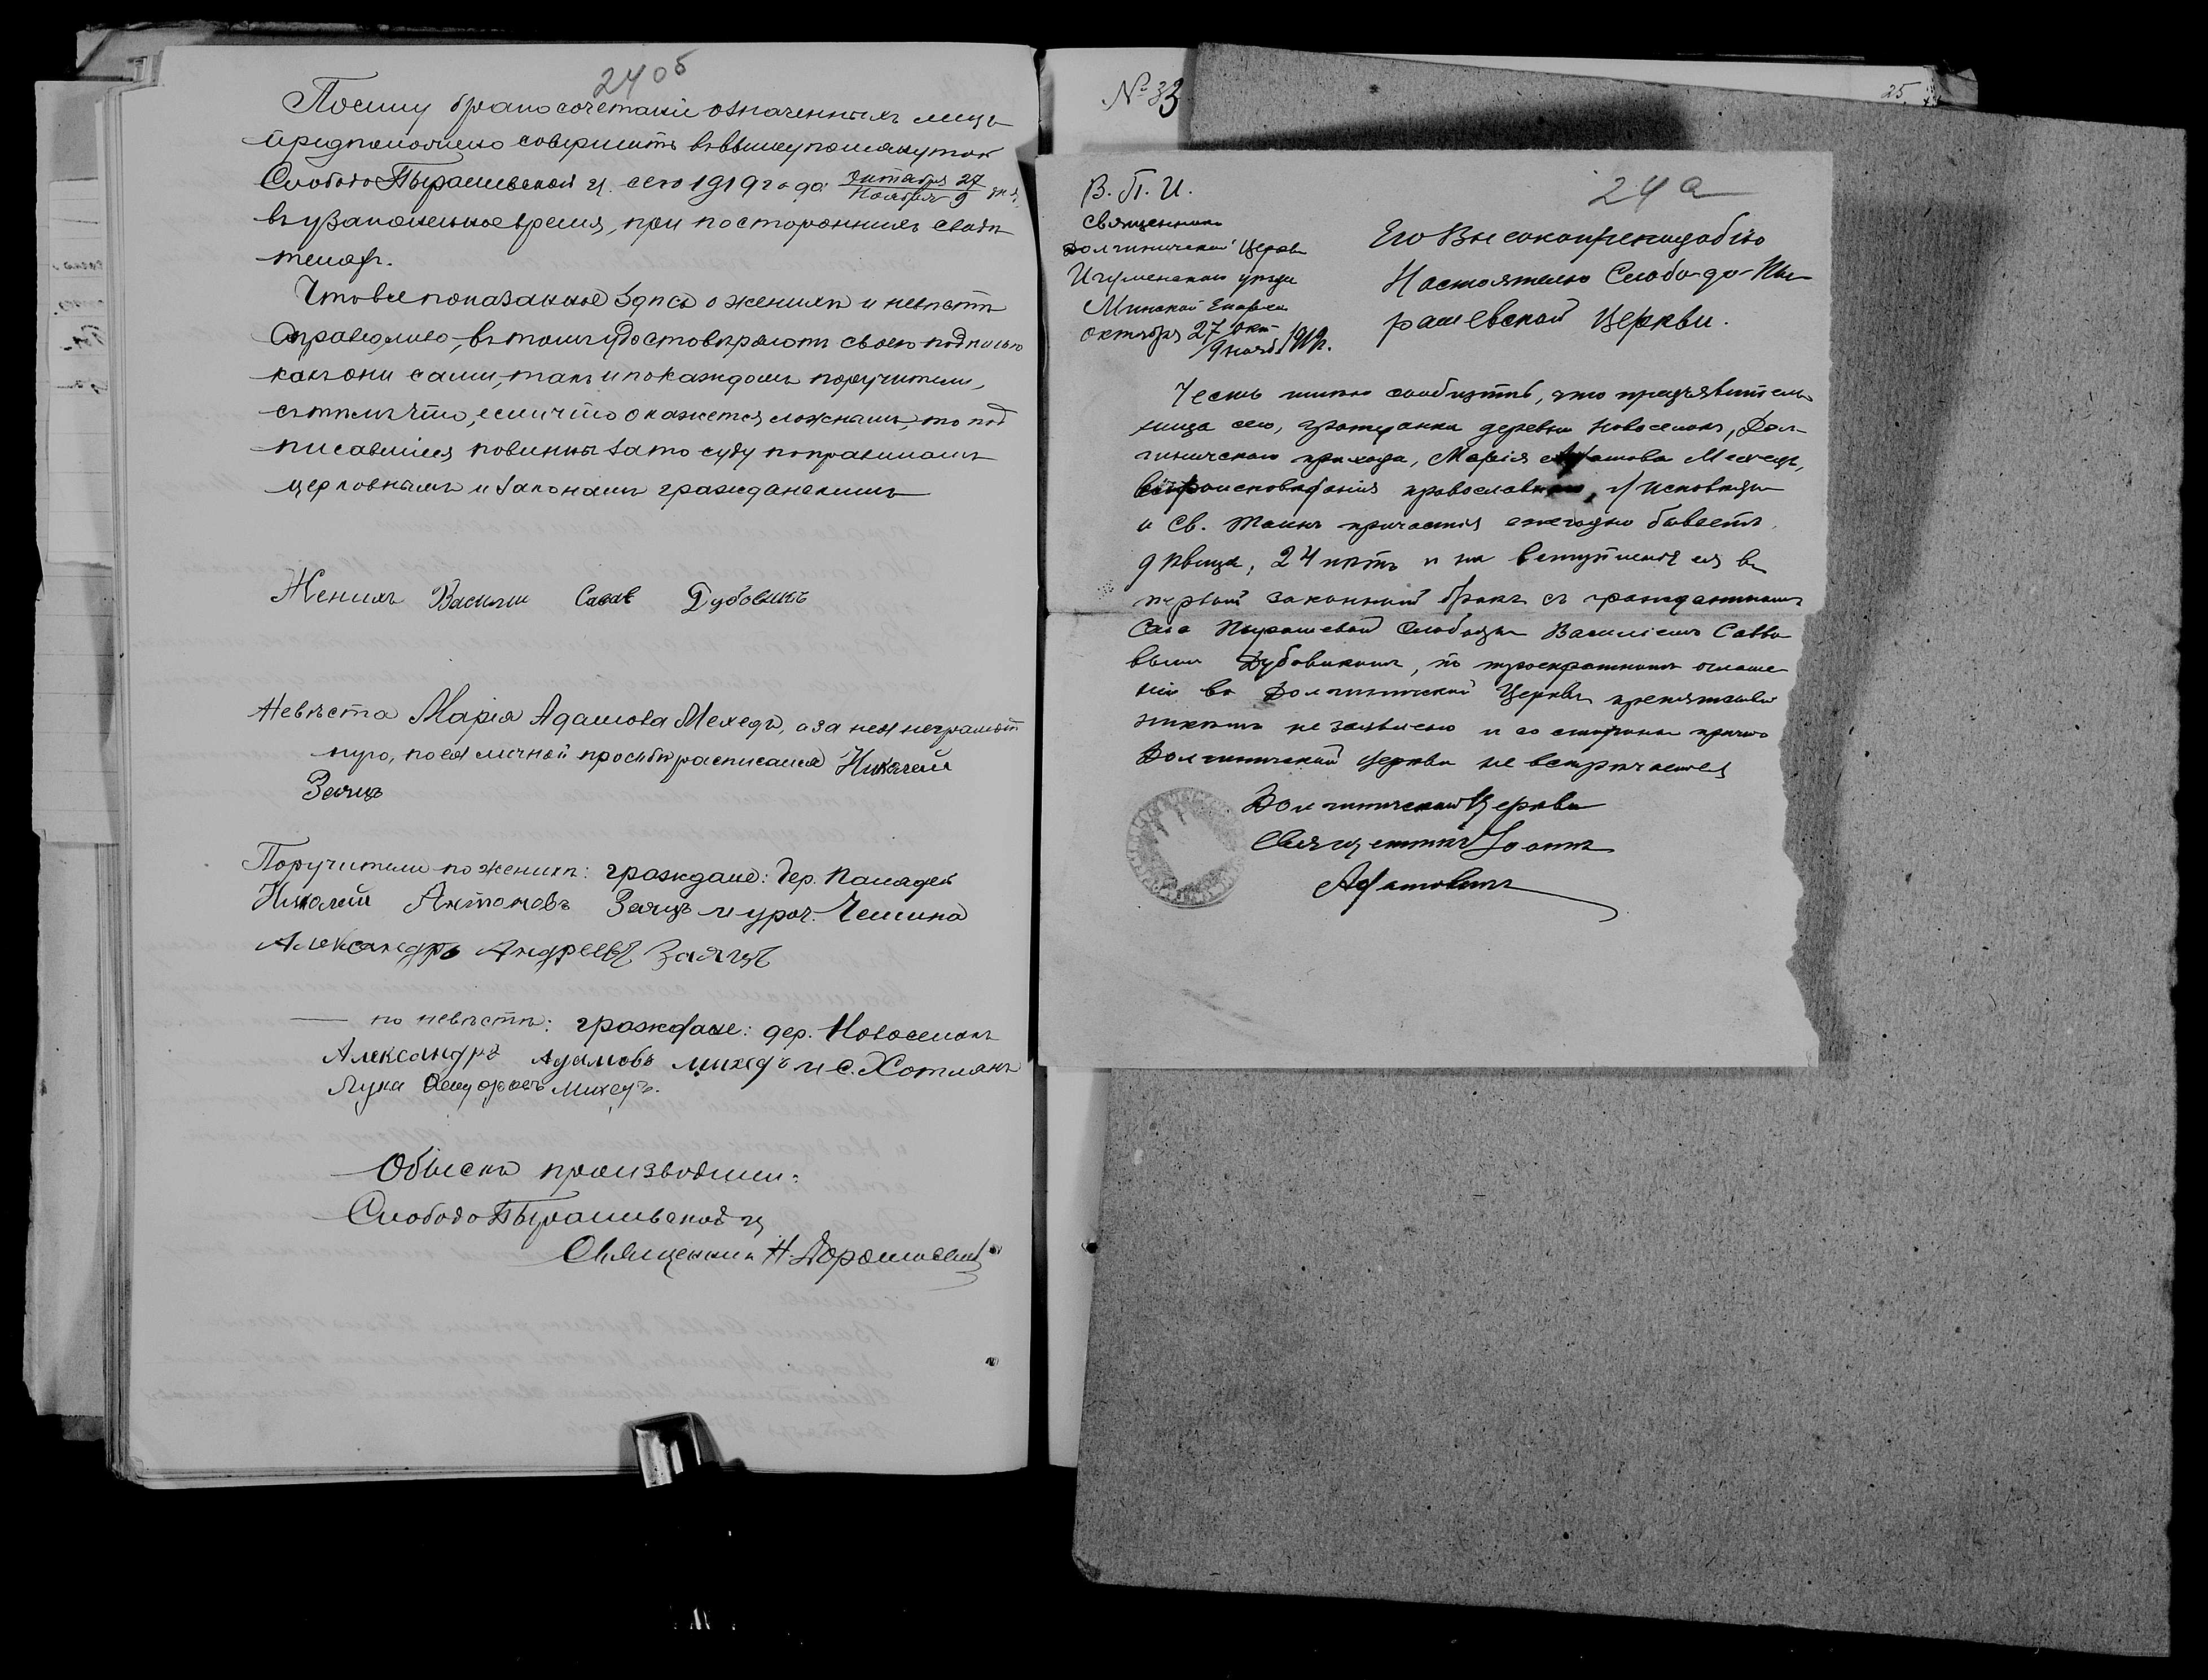 24 об
Посему бракосочетаніе означенныхъ лицъ
предположено совершить въ вышеупомянутой
Слободо Пырашевской ц. сего 1919 года Октября 27 / Ноября 9 дня,
въ узаконенное время, при постороннихъ свидѣ
теляхъ.
Что все показанное здѣсь о женихѣ и невѣстѣ
справедливо, въ томъ удостовѣряютъ своею подписью
какъ они сами, такъ и по каждомъ поручители,
съ тѣмъ что, если что окажется ложнымъ, то под
писавшіеся повинны за то суду по правиламъ
церковнымъ и законамъ гражданскимъ
Женихъ Василій Савв Дубовикъ
Невѣста Марія Адамова Мехедъ, а за нея неграмот
ную, по ея личной просьбѣ расписался Николай
Заяцъ
Поручители по женихѣ: граждане: дер.
Николай Антоновъ Заяцъ и уроч.
Александръ Андреевъ Заяцъ
— по невѣстѣ: граждане: дер. Новоселокъ
Александръ Адамовъ михедъ и с. Хотлянъ
Лука михедъ.
Обыскъ производили:
Слободо Пырашевской ц
Священникъ Н. Дорошевичъ
№ 33
25.
24 а
В. П. И.
Священникъ
Долгиничской Церкви
Игуменскаго уѣзда
Минской Епархіи
Октября 27 Окт / 9 нояб 1919 г.
Его Высокопреподобію
Настоятелю Слободо-Пы-
рашевской Церкви.
Честь имѣю сообщить, что предъявитель
ница сего, гражданка деревни Новоселокъ, Дол-
гиничскаго прихода, Марія Адамова Мехедъ,
вѣроисповѣданія православнаго, у исповѣди
и Св. Таинъ причастія ежегодно бываетъ,
дѣвица, 24 лѣтъ и на вступленіе ея въ
первый законный бракъ съ гражданиномъ
Села Пырашевой Слободы Василіемъ Савво
вымъ Дубовикомъ, по троекратномъ оглаше
ніи въ Долгиничской Церкви препятствій
никѣмъ не заявлено и со стороны причта
Долгиничской Церкви не встрѣчается
Долгиничской Церкви
Священникъ Іоаннъ